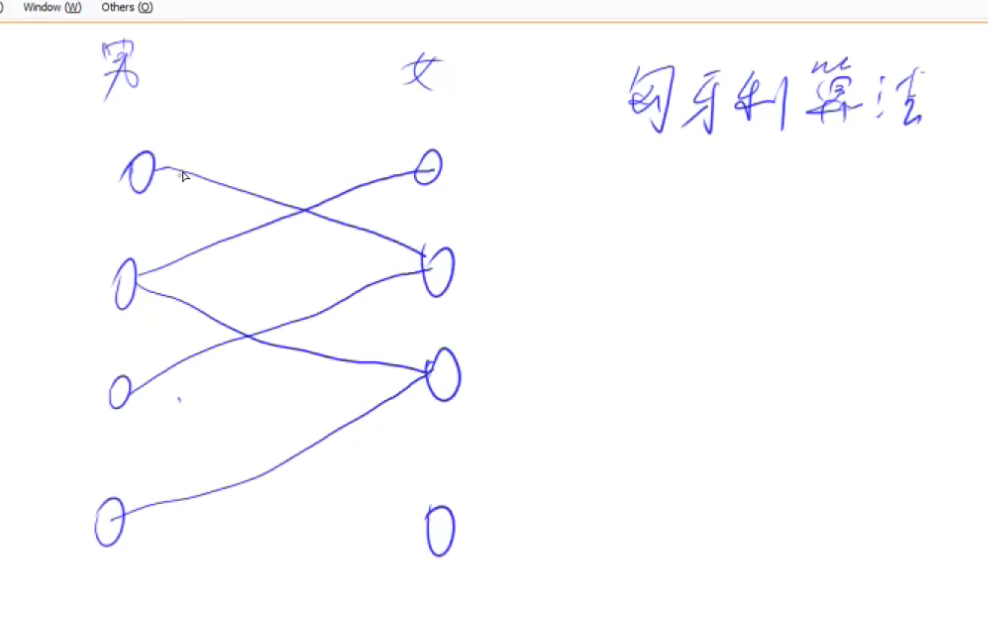 ) Window (W) Others (O)
男 女
匈牙利算法